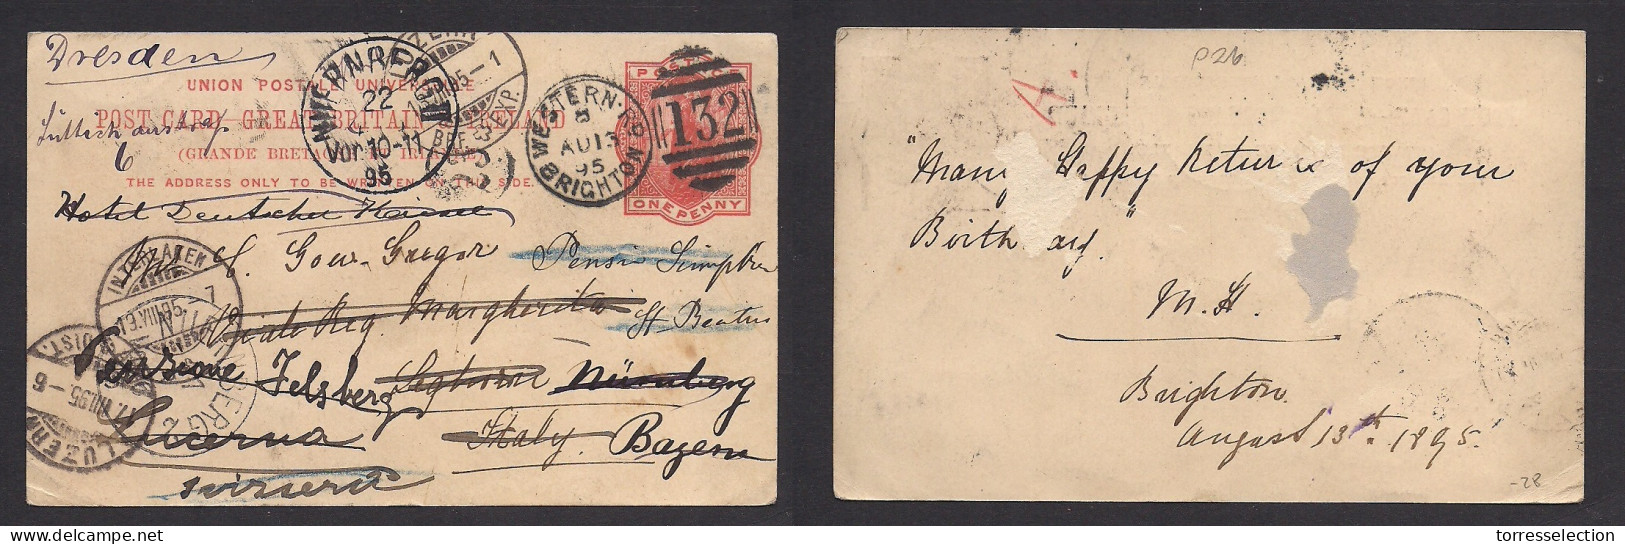 Dresden
UNION POSTALE UNIVERSELLE
POST CARD GREAT BRITAIN IRELAND
(GRANDE BRETAGNE ET IRLANDE)
THE ADDRESS ONLY TO BE WRITTEN ON THIS SIDE.
6
NUERNBERG II
22
Vor. 10-11
95
WESTERN-RD
BRIGHTON
AU 13
95
132
POSTAGE
ONE PENNY
Hotel Deutscher Kaiser
C. Gow Gregor
Pension Simplon
Margherita
St Beatus
Pensione Felsberg
Leghorn
Nürnberg
Lucerna
Italy
Bayern
Svizzera
INTERLAKEN
LUZERN
17.VIII.95-6
P26
A.
"Many Happy Returns of your
Birthday."
M. H.
Brighton
August 13th 1895.
-28
torresselection